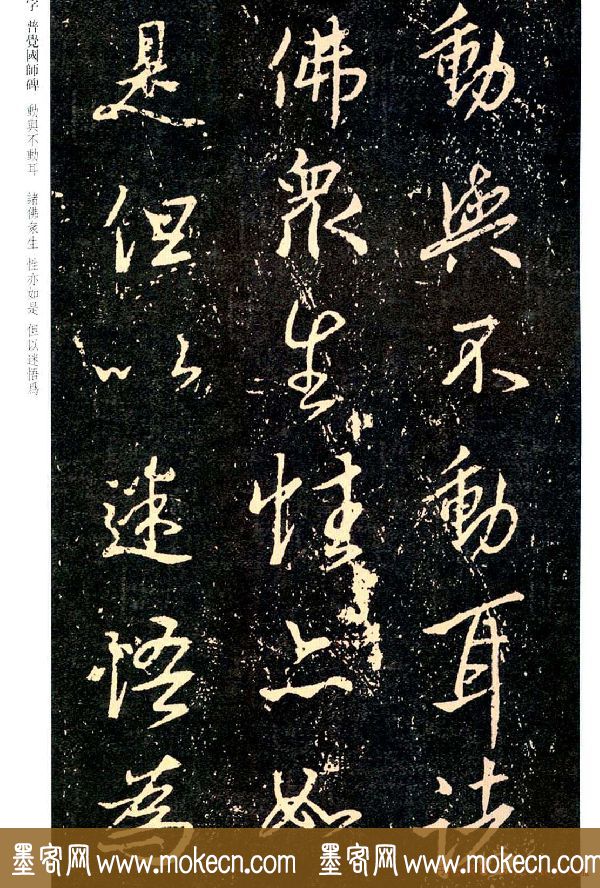 動與不動耳諸
佛衆生性亦如
是但以迷悟為
字 普覺國師碑 動與不動耳 諸佛衆生 性亦如是 但以迷悟爲
墨客网 www.mokecn.com 墨客网 www.mokecn.com